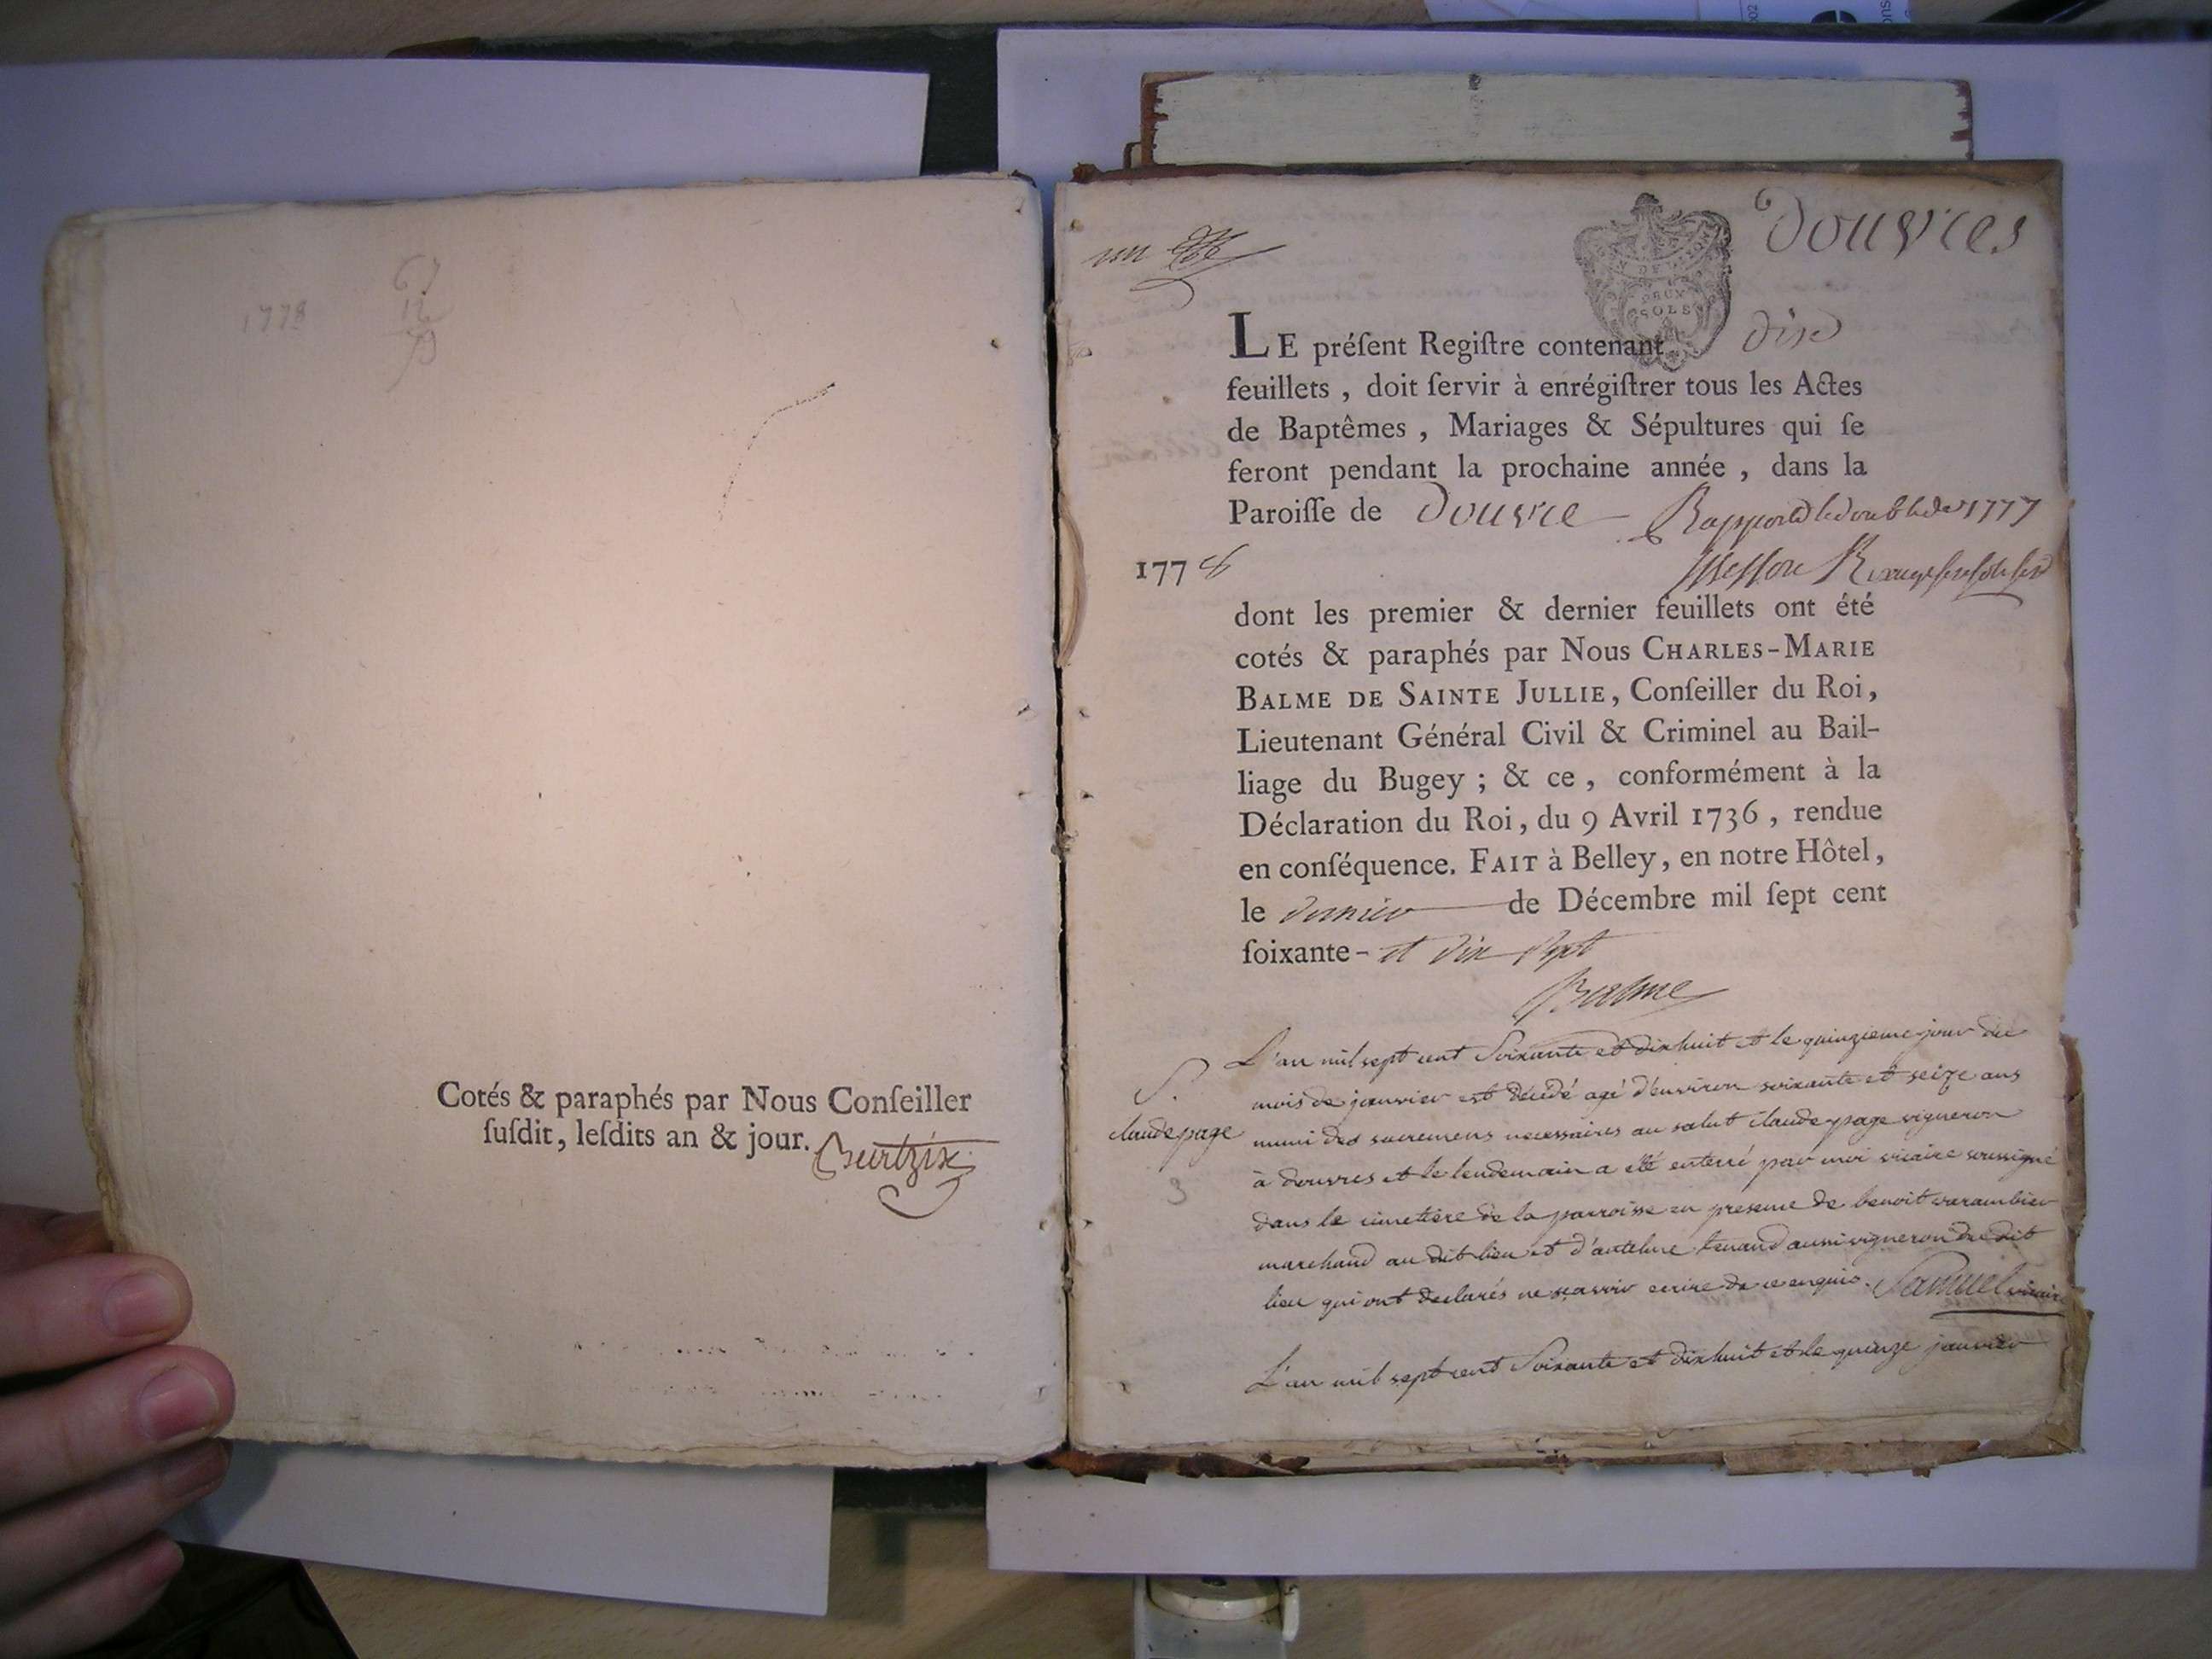 1778
12
Cotés & paraphés par Nous Conſeiller
ſuſdit, leſdits an & jour.
un
Douvres
DEUX
SOLS
LE préſent Regiſtre contenant dix
feuillets , doit ſervir à enrégiſtrer tous les Actes
de Baptêmes , Mariages & Sépultures qui ſe
feront pendant la prochaine année , dans la
Paroiſſe de Douvre Rapporté le double de 1777
1778
dont les premier & dernier feuillets ont été
cotés & paraphés par Nous CHARLES-MARIE
BALME DE SAINTE JULLIE, Conſeiller du Roi,
Lieutenant Général Civil & Criminel au Bail-
liage du Bugey ; & ce , conformément à la
Déclaration du Roi, du 9 Avril 1736 , rendue
en conſéquence. FAIT à Belley, en notre Hôtel,
le dernier de Décembre mil ſept cent
ſoixante- et dix sept
Balme
L'an mil sept cent Soixante et dixhuit et le quinzieme jour du
S. mois de janvier est décédé agé d'environ soixante et seize ans
claude page muni des sacremens necessaires au salut claude page vigneron
à douvres et le lendemain a été enterré par moi vicaire soussigné
3
dans le cimetière de la parroisse en presence de benoit varambier
marchand au dit lieu et d'antelme tenand aussi vigneron du dit
lieu qui ont declarés ne sçavoir ecrire de ce enquis. Samuel vicaire
L'an mil sept cent Soixante et dixhuit et le quinze janvier